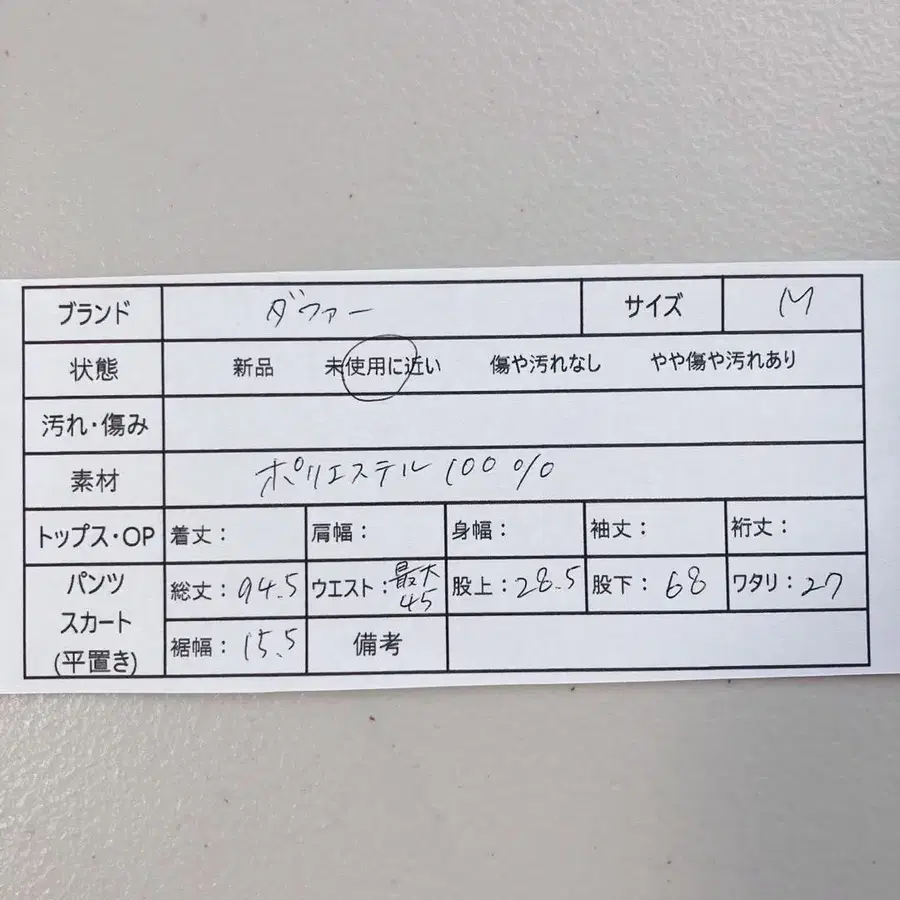 ブランド ダファー サイズ M
状態 新品 未使用に近い 傷や汚れなし やや傷や汚れあり
汚れ・傷み
素材 ポリエステル 100%
トップス・OP 着丈: 肩幅: 身幅: 袖丈: 裄丈:
パンツ
スカート
(平置き)
総丈: 94.5 ウエスト: 最大 45 股上: 28.5 股下: 68 ワタリ: 27
裾幅: 15.5 備考